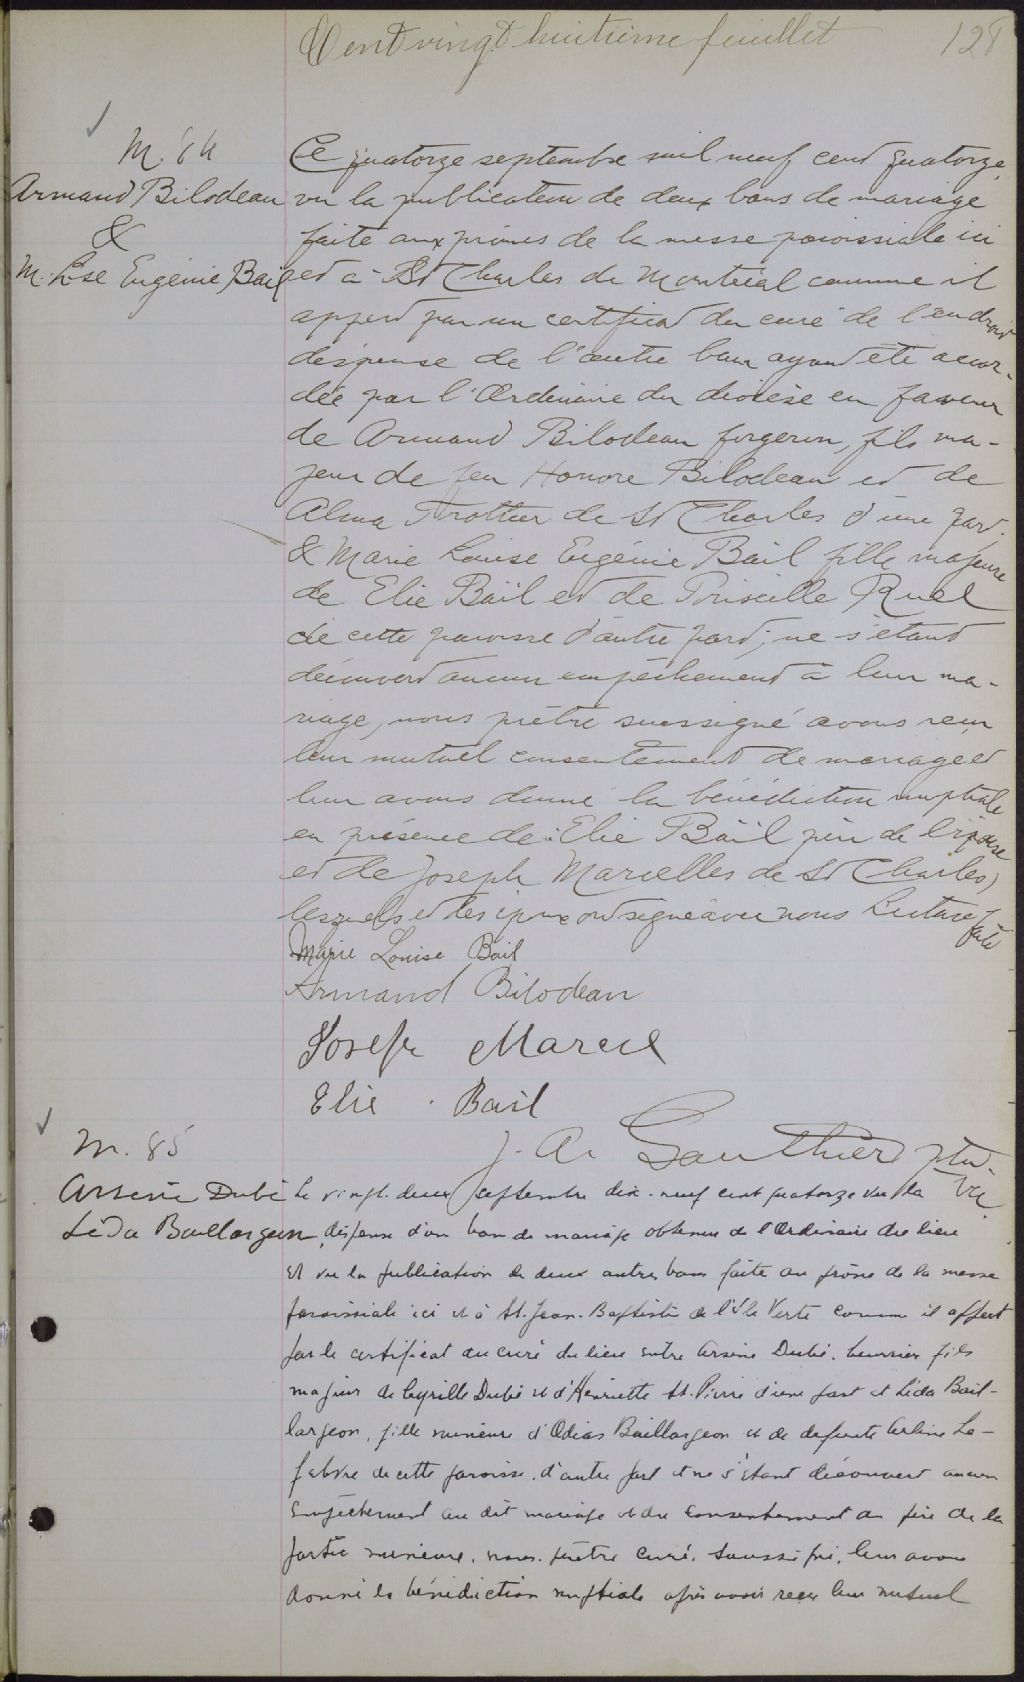 Cent vingt huitième feuillet 128
M. 84
Armand Bilodeau
&
M. Lse Eugénie Bail
Ce quatorze septembre mil neuf cent quatorze,
vu la publication de deux bans de mariage
faite aux prônes de la messe paroissiale ici
et à St Charles de Montréal comme il
appert par un certificat du curé de l'endroit
dispense de l'autre ban ayant été accor-
dée par l'Ordinaire du diocèse en faveur
de Armand Bilodeau forgeron, fils ma-
jeur de feu Honoré Bilodeau et de
Alma Trottier de St Charles d'une part.
& Marie Louise Eugénie Bail fille majeure
de Elie Bail et de Priscille Ruel
de cette paroisse d'autre part; ne s'étant
découvert aucun empêchement à leur ma-
riage, nous prêtre soussigné avons reçu
leur mutuel consentement de mariage et
leur avons donné la bénédiction nuptiale
en présence de: Elie Bail père de l'épouse
et de Joseph Marcelles de St Charles)
lesquels et les époux ont signé avec nous Lecture faite
Marie Louise Bail
Armand Bilodeau
Joseph Marcil
Elie Bail
J. A. Gauthier ptre. Vic.
M. 85
Arsène Dubé
Léda Baillargeon
Le vingt-deux septembre dix-neuf cent quatorze vu la
dispense d'un ban de mariage obtenue de l'Ordinaire du lieu
et vu la publication de deux autres bans faite au prône de la messe
paroissiale ici et à St. Jean-Baptiste de l'Isle Verte comme il appert
par le certificat du curé du lieu entre Arsène Dubé, beurrier fils
majeur de Cyrille Dubé et d'Henriette St. Pierre d'une part et Léda Bail-
largeon, fille mineure d'Odias Baillargeon et de defunte Arline Le-
febvre de cette paroisse, d'autre part et ne s'étant découvert aucun
empêchement au dit mariage et du consentement du père de la
partie mineure, nous, prêtre curé, soussigné, leur avons
donné la bénédiction nuptiale après avoir reçu leur mutuel